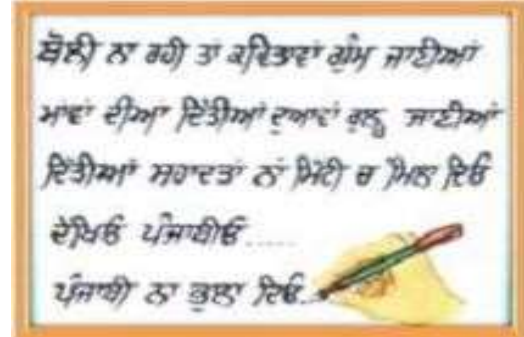 ਬੋਲੀ ਨਾ ਰਹੀ ਤਾਂ ਕਵਿਤਾਵਾਂ ਗੁੰਮ ਜਾਣੀਆਂ
ਮਾਵਾਂ ਦੀਆ ਦਿੱਤੀਆਂ ਦੁਆਵਾਂ ਰੁਲ੍ਹ ਜਾਣੀਆਂ
ਦਿੱਤੀਆਂ ਸਹਾਦਤਾਂ ਨਾਂ ਮਿੱਟੀ ਚ ਮਿਲਾ ਦਿਓ
ਦੇਖਿਓ ਪੰਜਾਬੀਓ.....
ਪੰਜਾਬੀ ਨਾ ਭੁਲਾ ਦਿਓ..